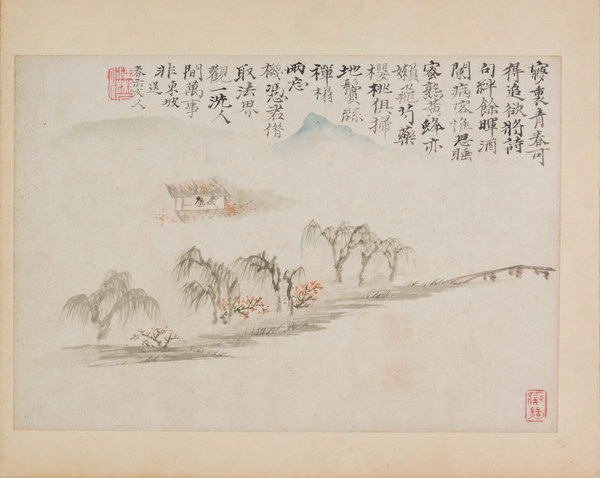 㝱裏青春可
得追欲將詩
句絆餘暉酒
闌病客惟思睡
蜜熟黃蜂亦
嬾飛芍藥
櫻桃俱掃
地鬢絲
禪榻
兩忘
機憑君借
取法界
觀一洗人
間萬事
非東坡
送
春